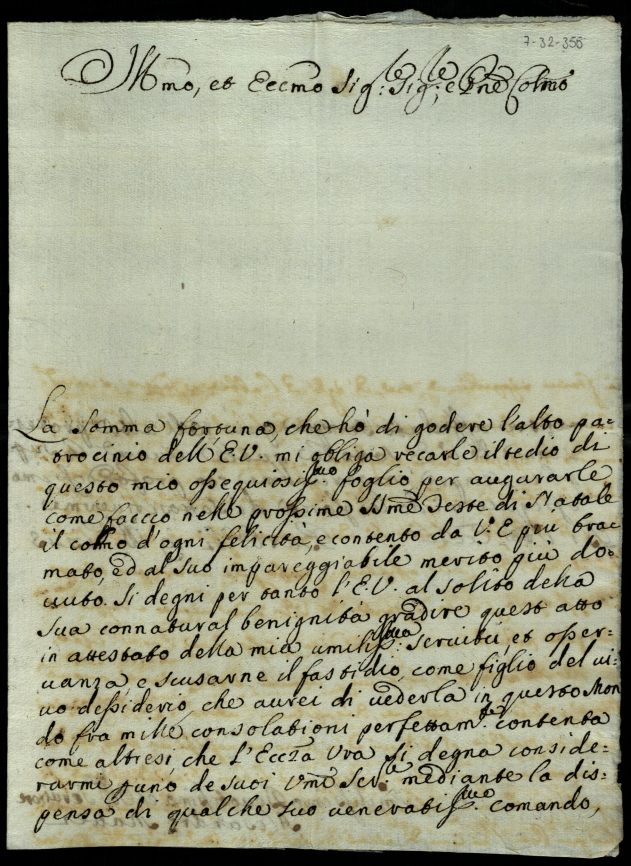 7-32-356
Illmo, et Eccmo Sig:re Sig:re, e Pne Colmo
La somma fortuna, che hò di godere l'alto pa=
trocinio dell'E.V. mi obliga recarle il tedio di
questo mio ossequiosiss:mo foglio per augurarle
come faccio nelle prossime SSme Feste di Natale
il colmo d'ogni felicità, e contento da V.E più bra
mato, ed al suo impareggiabile merito più do=
uuto. Si degni per tanto l'E.V. al solito della
sua connatural benignità gradire quest atto
in attestato della mia umiliss:ma seruitù, et osser=
uanza, e scusarne il fastidio, come figlio del ui=
uo dessiderio, che aurei di uederla in questo Mon
do fra mille consolationi perfettam:te contenta
come altresi, che l'Eccza Vra si degna conside=
rarmi p uno de suoi Vmi Seri: mediante la dis=
pensa di qualche suo uenerabiliss:mo comando,